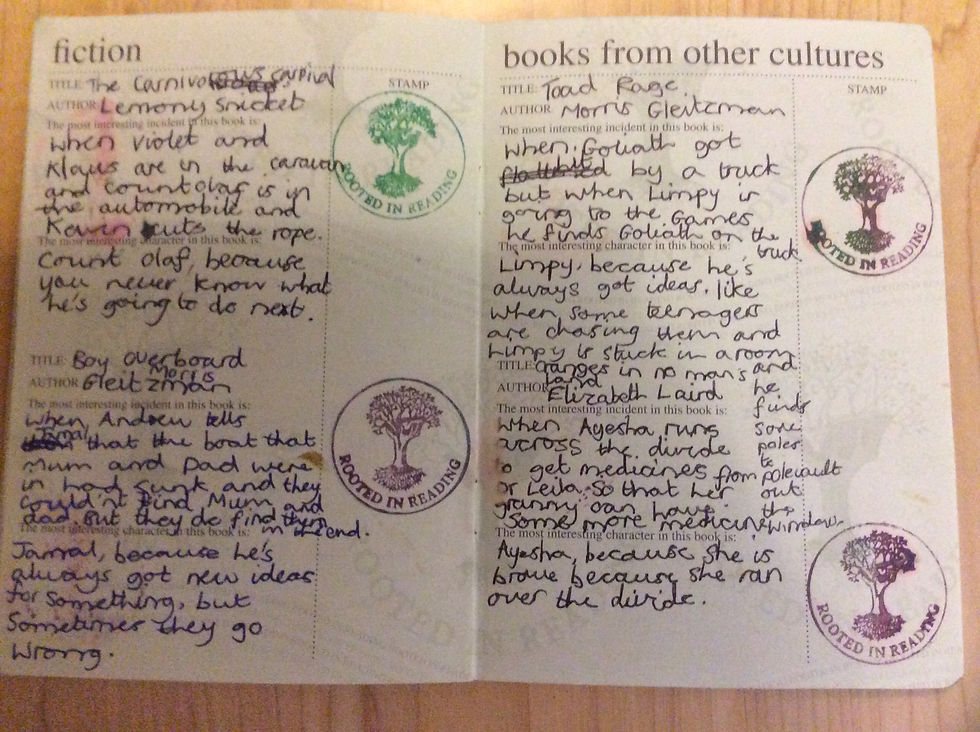 fiction
TITLE: The Carnivorous Carnival
STAMP
AUTHOR: Lemony Snicket
The most interesting incident in this book is:
When Violet and
Klaus are in the caravan
and count olaf is in
the automobile and
Kevin cuts the rope.
The most interesting character in this book is:
Count Olaf, because
you never know what
he's going to do next.
ROOTED IN READING
TITLE: Boy Overboard
AUTHOR: Morris Gleitzman
The most interesting incident in this book is:
When Andrew tells
Jamal that the boat that
Mum and Dad were
in had sunk and they
could'nt find Mum and
dad. But they do find them
in the end.
The most interesting character in this book is:
Jamal, because he's
always got new ideas
for something, but
Sometimes they go
wrong.
ROOTED IN READING
books from other cultures
TITLE: Toad Rage
STAMP
AUTHOR: Morris Gleitzman
The most interesting incident in this book is:
When Goliath got
flattened by a truck
but when Limpy is
going to the Games
he finds Goliath on the
truck.
The most interesting character in this book is:
Limpy, because he's
always got ideas. like
when some teenagers
are chasing them and
Limpy is stuck in a room
and
he
finds
some
poles
to
polevault
out
the
window.
ROOTED IN READING
TITLE: Oranges in no man's
land
AUTHOR: Elizabeth Laird
The most interesting incident in this book is:
When Ayesha runs
across the divide
to get medicines from
Dr Leila so that her
granny can have
some more medicine
The most interesting character in this book is:
Ayesha, because she is
brave because she ran
over the divide.
ROOTED IN READING